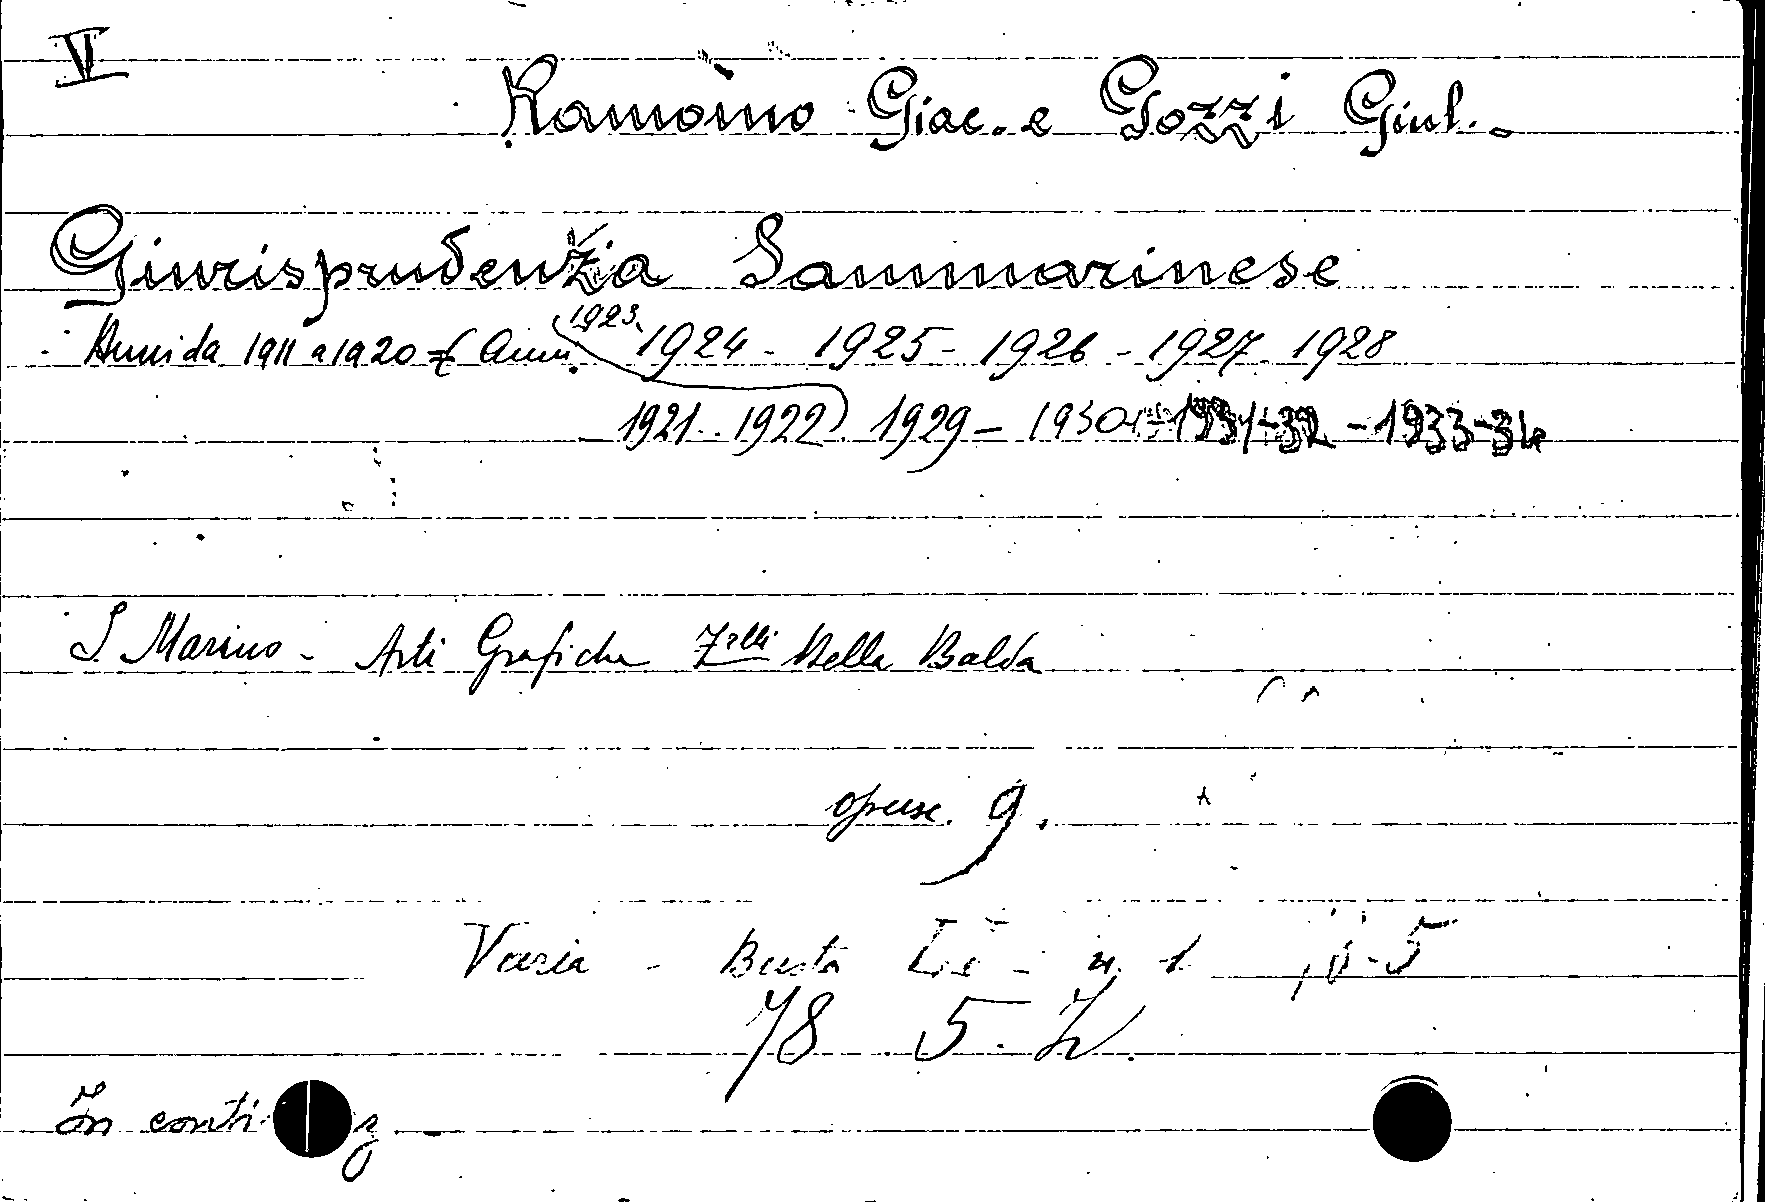 V
Ramoino Giac. e Gozzi Giul.-
Giurisprudenza Sammarinese
Anni da 1911 a 1920 = (Anni 1923. 1924 - 1925 - 1926 - 1927. 1928
1921 - 1922) 1929 - 1930 - 1931-32 - 1933-34
S. Marino - Arti Grafiche F.lli Della Balda
opusc. 9.
Varia - Busta n. 1
78 5.
In conti z